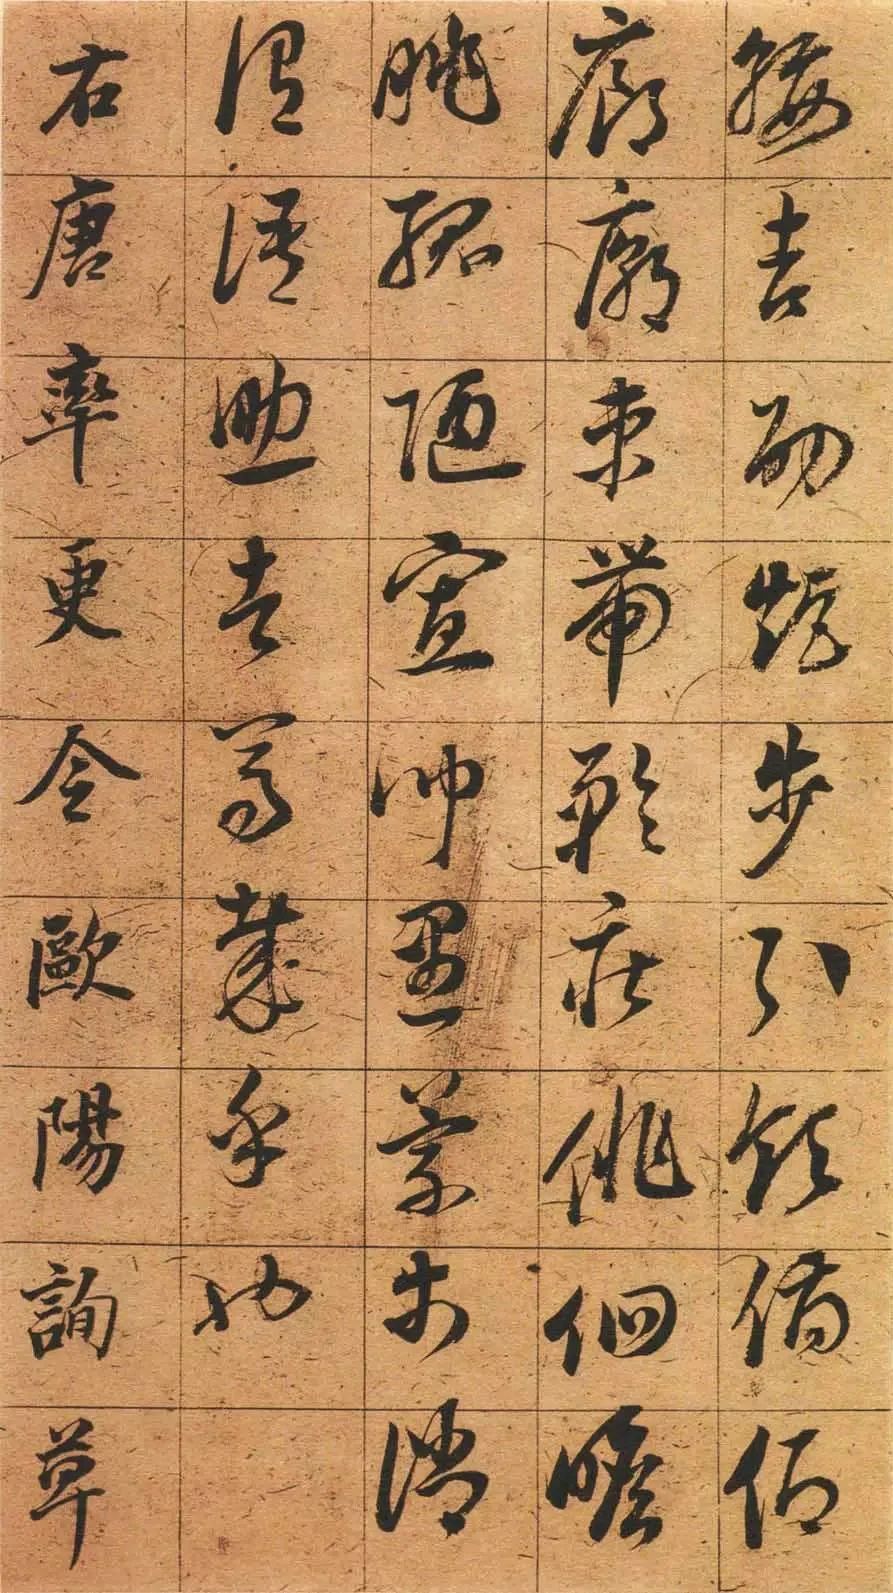 綏吉劭矩步引領俯仰
廊廟束帶矜莊俳佪瞻
眺孤陋寡聞愚蒙等誚
謂語助者焉哉乎也
右唐率更令歐陽詢草